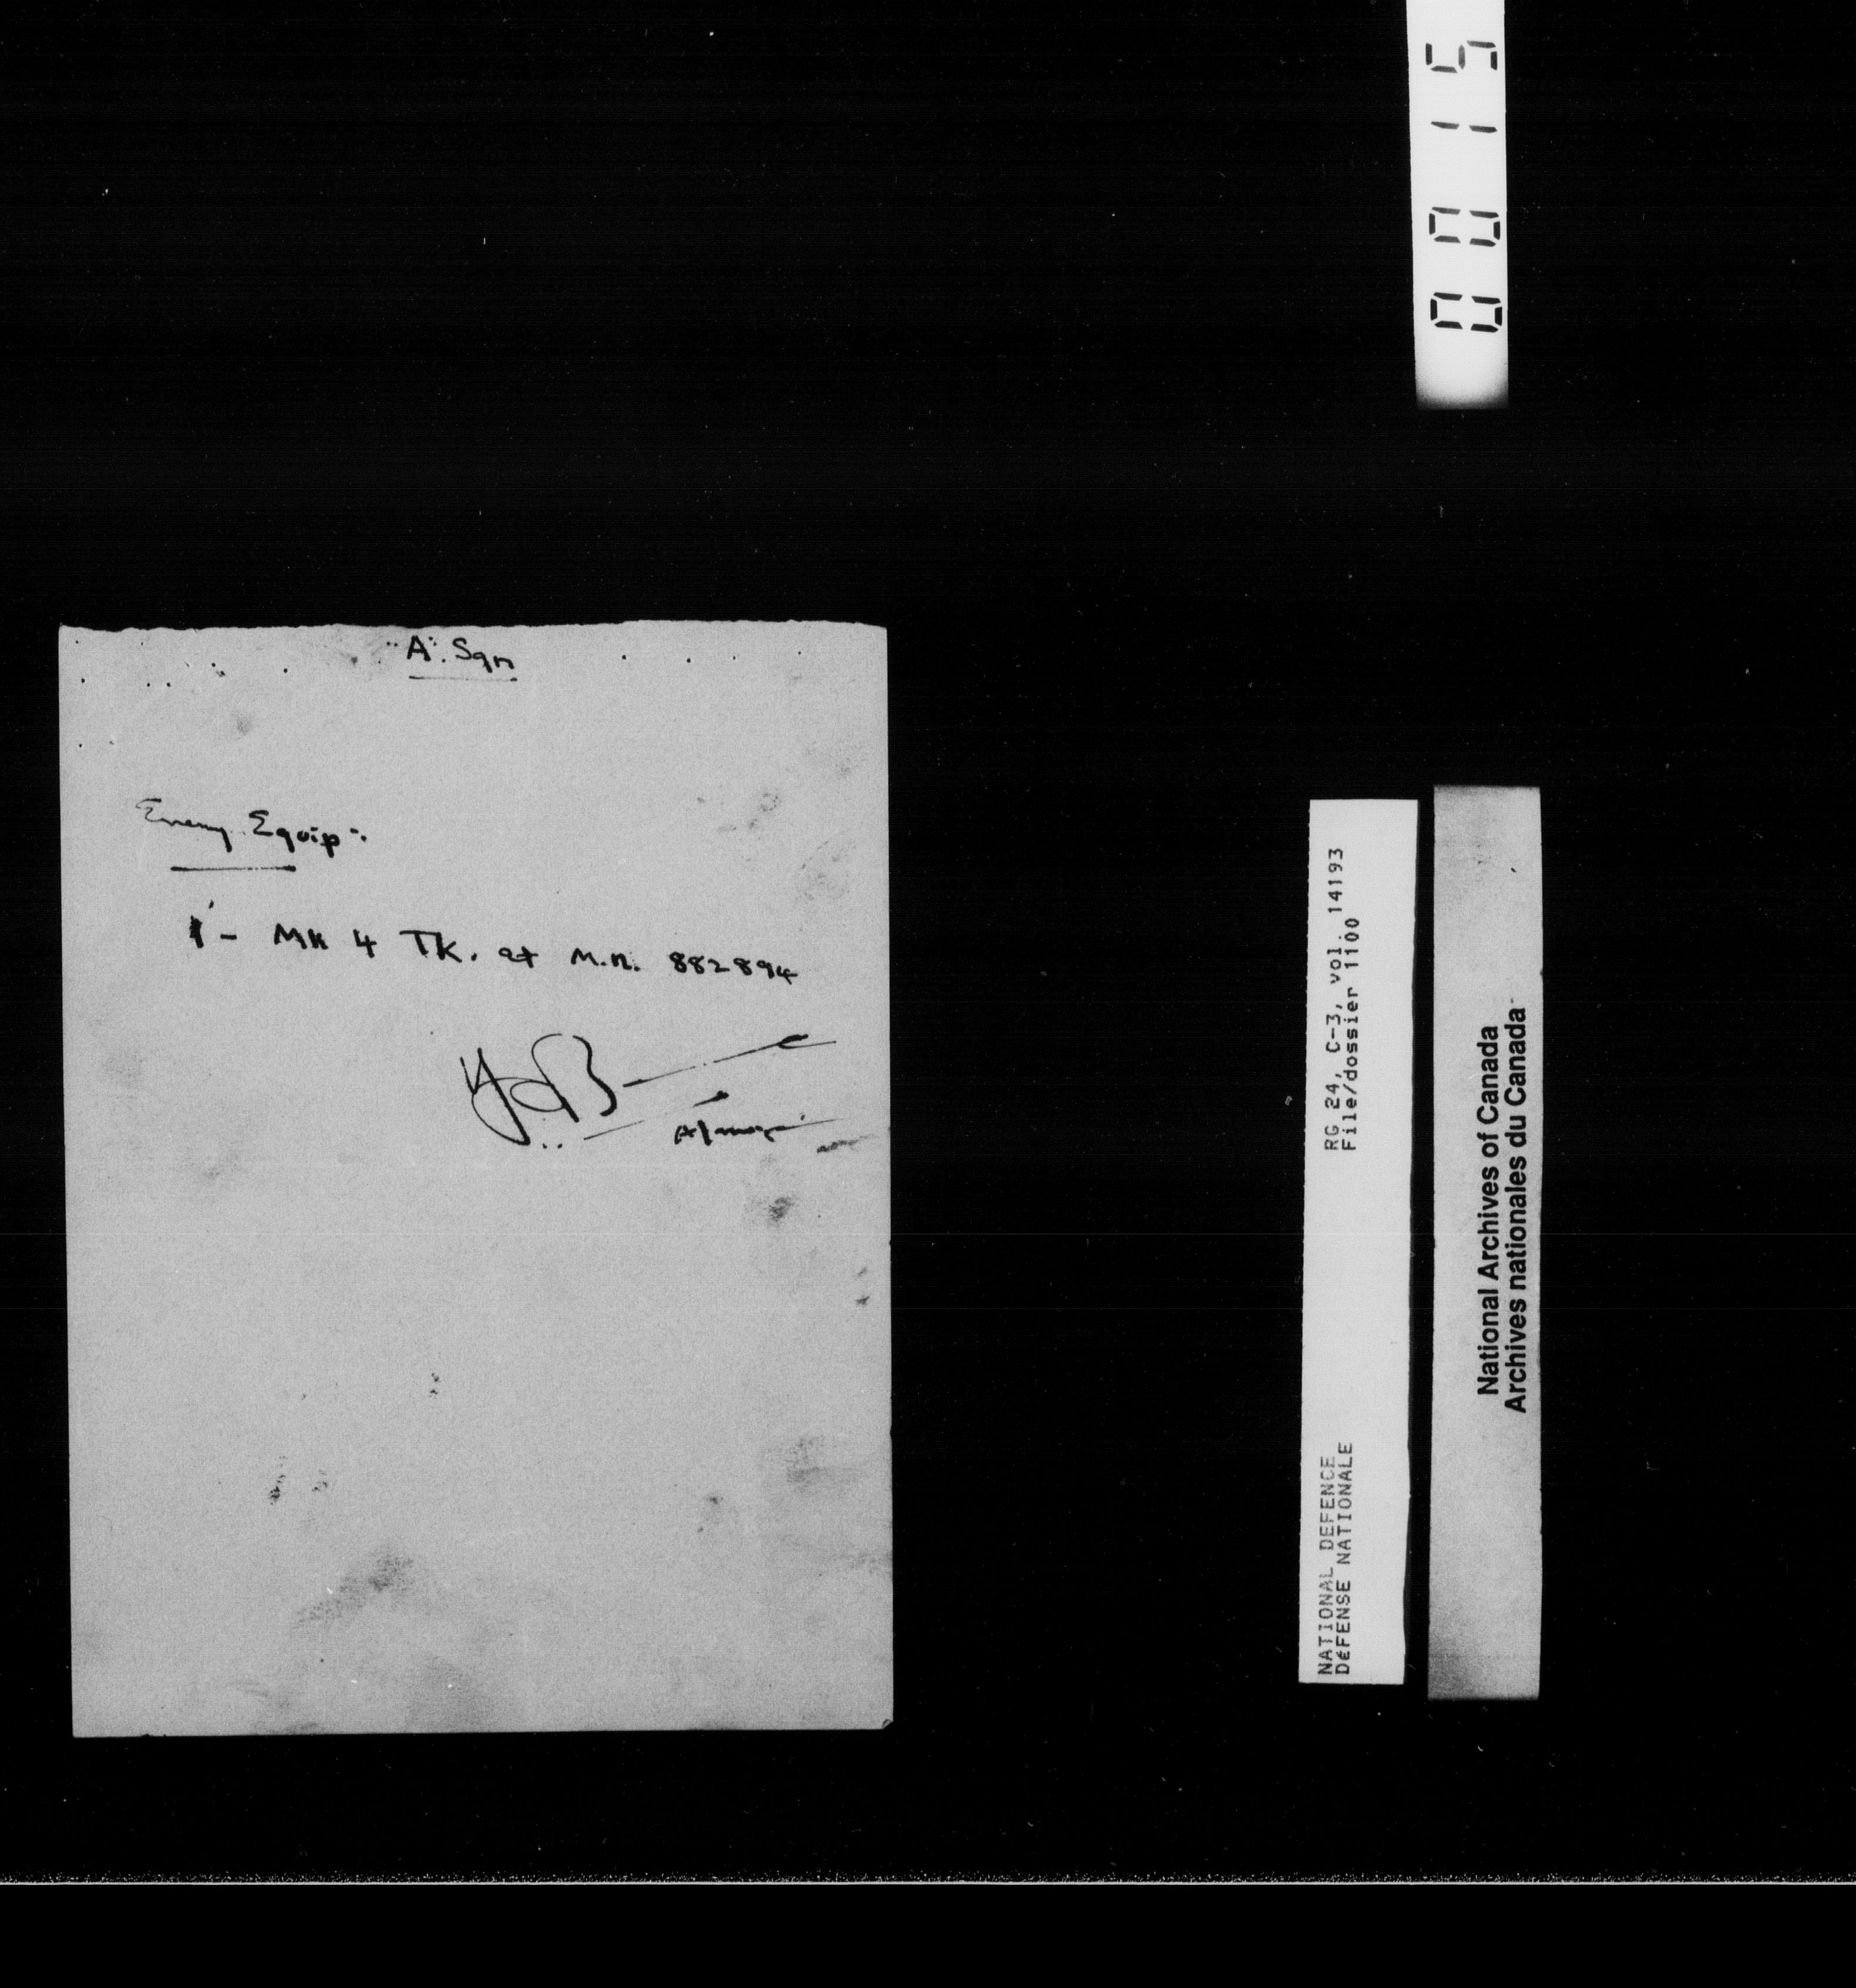 0015
"A". Sqn
Enemy Equip :-
1 - MK 4 TK. at M.R. 882894
A/Major
RG 24, C-3, vol. 14193
File/dossier 1100
NATIONAL DEFENCE
DéFENSE NATIONALE
National Archives of Canada
Archives nationales du Canada